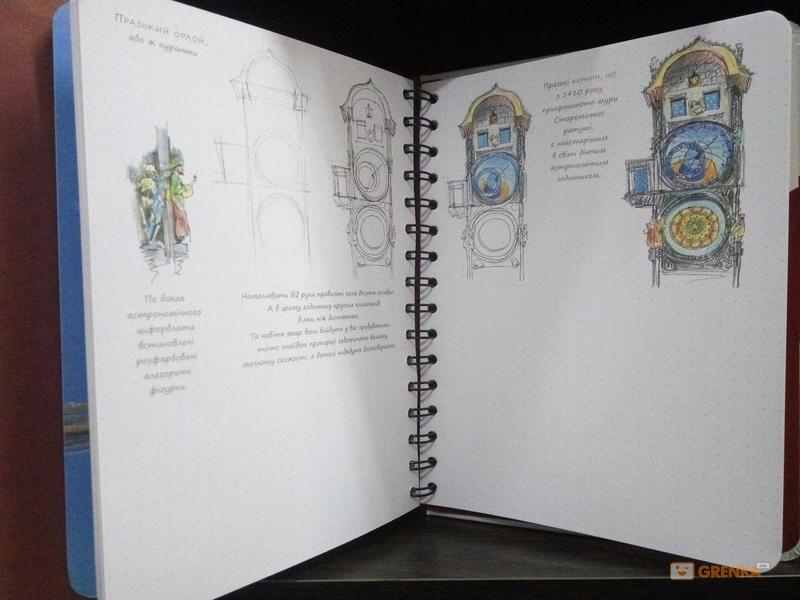 Празький орлой,
або ж куранти
По боках
астрономічного
циферблата
встановлені
розфарбовані
алегоричні
фігурки.
Намалювати від руки правильні кола досить складно.
А в цьому годиннику круглих елементів
більш ніж достатньо.
Та навіть якщо вони вийдуть у вас кривуватими,
точно знайдені пропорції забезпечать вашому
малюнку схожість, а деталі нададуть достовірності.
Празькі куранти, що
з 1410 року
прикрашають мури
Староміської
ратуші,
є найстарішим
в світі діючим
астрономічним
годинником.
GRENKA